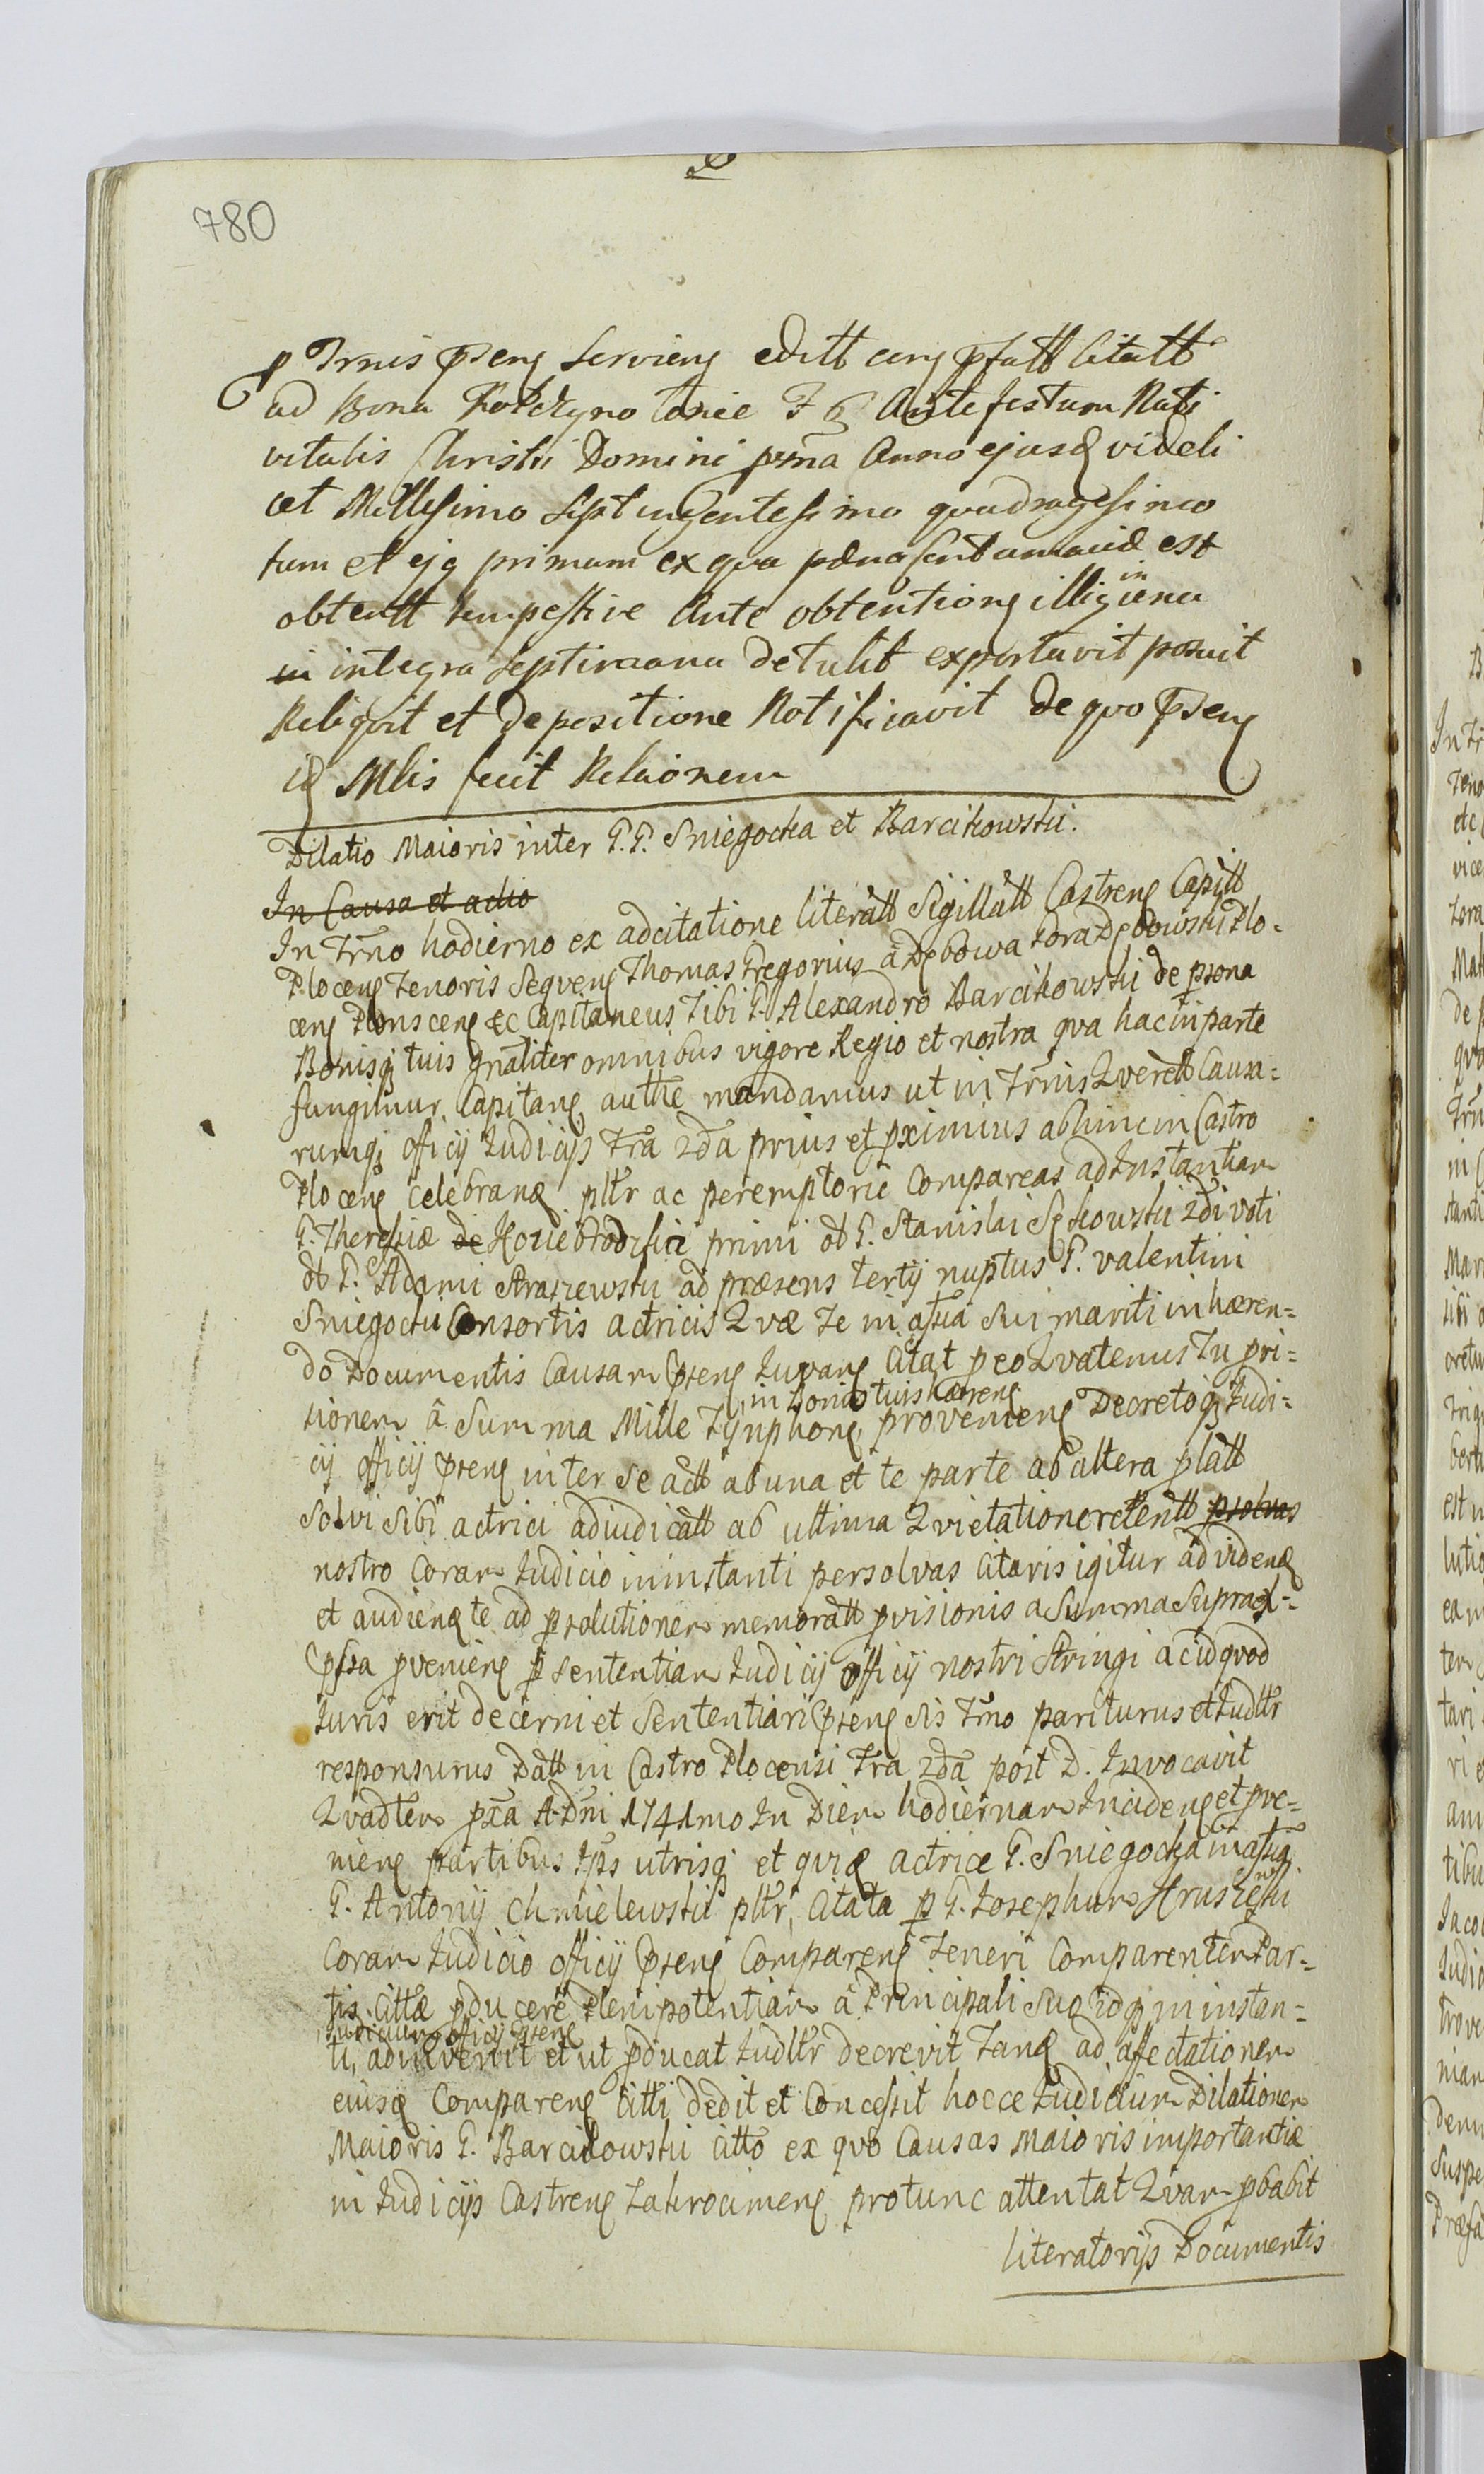 780
p Trnis pseng Servieng editt cerg pfatt Citatt
ad Bona Tonie F 6 Ante festum Nati
vitatis Christi Domini pxma Anno ejusd videli
cet Millesimo Septingentesimo quadragesimo
tum et ejg primum ex qua est
obtentt tempestive Ante obtentiong illig in
in integra Septimana detulit exportavit posuit
Reliqvit et depositione Notificavit de qvo pseng
id Mlis fecit Relaionem
Dilatio Maioris inter G.G. Sniegocka et Barcikowski.
In Causa et actio
In Trno hodierno ex adcitatione literatt Sigillatt Castreng Capitt
Ploceng Tenoris Seqveng Thomas Gregorius a Dębowa Gora Dębowski Plo-
ceng Plonsceng Ec Capitaneus Tibi G. Alexandro Barcikowski de psona
Bonisq tuis gnaliter omnibus vigore Regio et nostra qva hac in parte
fungimur Capitang authe mandamus ut in Trnis Qverett Causa-
rumq officij Judicijs Fra 2da prius et pximius abhinc in Castro
Ploceng celebrand pltr ac peremptorie Compareas ad Instantiam
G. Theresiæ de primi ol G. Stanislai Sękowski 2di voti
ol G. Adami Araszewski ad præsens tertij nuptus G. Valentini
Sniegocki Consortis actricis Qvæ Te in astia sui mariti inhæren-
do Documentis Causam pseng Iuvang Citat p eo Qvatenus Tu pvi-
sionem â Summa Mille Tynphong in Bonis tuis hæreng provenieng Decretoq Judi-
cij officij pseng inter Se actt ab una et te parte ab altera platt
Solvi Sibi actrici adiudicatt ab ultima Qvietatione retentt psolvas
nostro Coram Judicio in instanti persolvas Citaris igitur ad videnđ
et audienđ te ad psolutionem memoratt pvisionis a Summa Supra ex-
pssa pvenieng p Sententiam Judicij officij nostri Stringi ac id qvod
Iuris erit decerni et Sententiari pseng sis Trno pariturus et Judltr
responsurus Datt in Castro Plocensi Fra 2da post D. Invocavit
Qvadtem pxa A. Dni 1741mo In Diem hodiernam Incideng et pve-
nieng partibus Ips utrisq et qviđ actricæ G. Sniegocka in astia
G. Antonij Chmielewski pltr, Citata p G. Josephum Hruszewski
Coram Judicio officij pseng Compareng Teneri Comparentem Par-
tis Cittæ pducere Plenipotentiam â Principali Suo idq in instan-
ti, Judicium officij pseng adinvenit et ut pducat Judltr decrevit Tanđ ad affectationem
eiusđ Compareng Citti dedit et Concessit hocce Judicium Dilationem
Maioris G. Barcikowski Citto ex qvo Causas Maioris importantiæ
in Judicijs Castreng Zakrocimeng protunc attentat Qvam pbabit
literatorijs Documentis